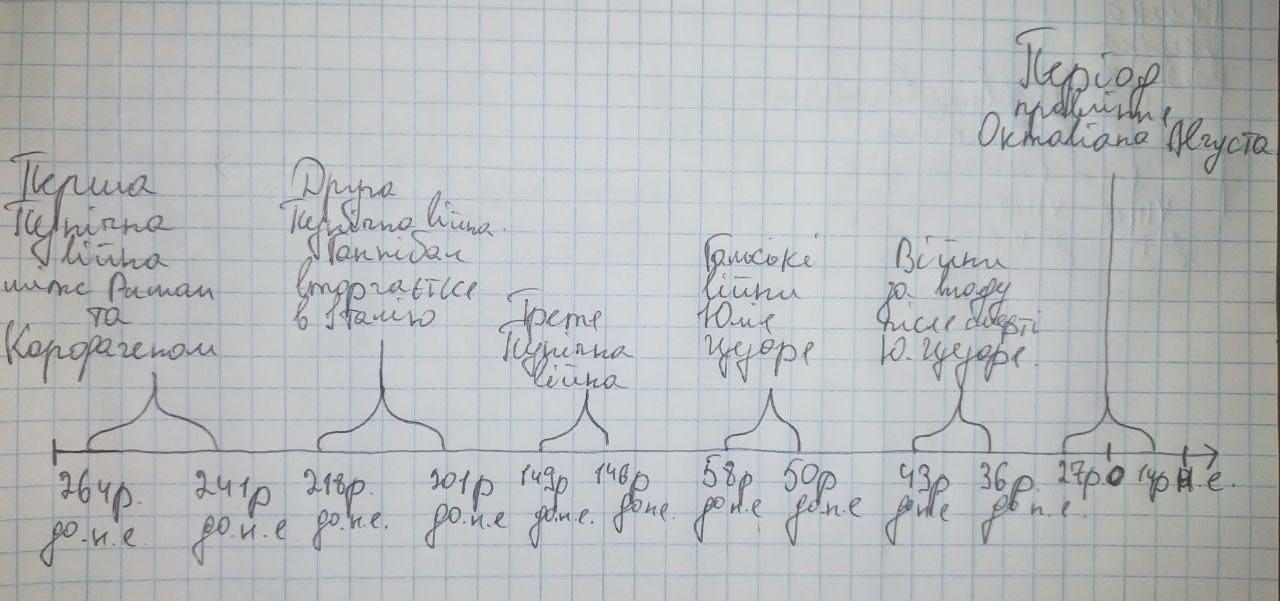 Період
правління
Октавіана Августа
Перша
Пунічна
війна
між Римом
та
Карфагеном
Друга
Пунічна війна.
Ганнібал
вторгається
в Італію
Третя
Пунічна
війна
Галські
війни
Юлія
Цезаря
Війни
за владу
після смерті
Ю. Цезаря.
264р. до.н.е
241р до.н.е
218р. до.н.е.
201р до.н.е
149р до.н.е.
146р до.н.е.
58р до.н.е
50р до.н.е
43р до.н.е
36р. до н.е.
27р. 0 14р н.е.